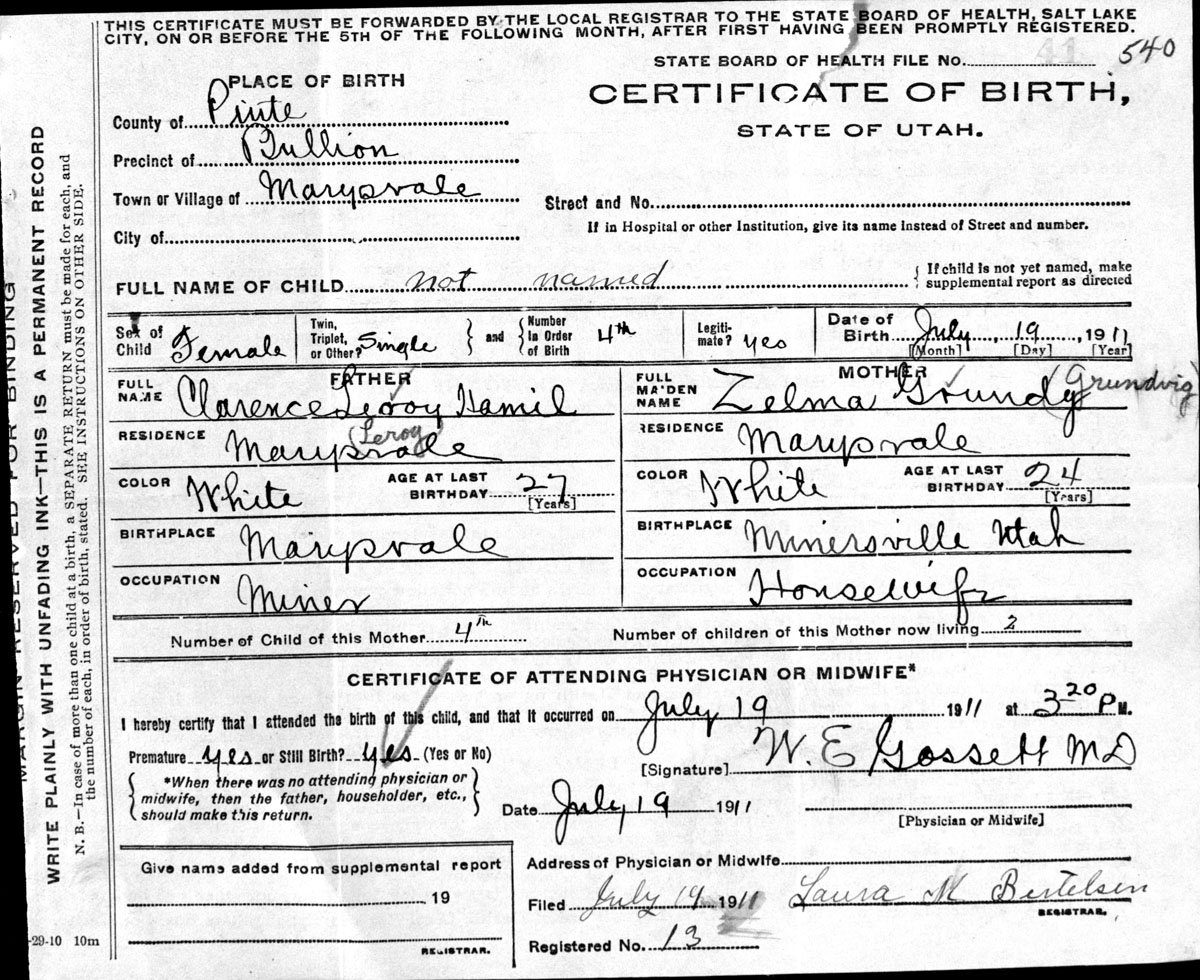 THIS CERTIFICATE MUST BE FORWARDED BY THE LOCAL REGISTRAR TO THE STATE BOARD OF HEALTH, SALT LAKE
CITY, ON OR BEFORE THE 5TH OF THE FOLLOWING MONTH, AFTER FIRST HAVING BEEN PROMPTLY REGISTERED.
STATE BOARD OF HEALTH FILE No. 41 540
PLACE OF BIRTH
CERTIFICATE OF BIRTH,
STATE OF UTAH.
County of Piute
Precinct of Bullion
Town or Village of Marysvale
Street and No.
City of
If in Hospital or other Institution, give its name instead of Street and number.
FULL NAME OF CHILD not named { If child is not yet named, make
supplemental report as directed
Sex of Child Female
Twin, Triplet, or Other? Single } and { Number in Order of Birth 4th
Legiti-mate? yes
Date of Birth July 19 1911
[Month] [Day] [Year]
FATHER
FULL NAME Clarence Leroy Hamil
(Leroy)
RESIDENCE Marysvale
COLOR White AGE AT LAST BIRTHDAY 27 [Years]
BIRTHPLACE Marysvale
OCCUPATION Miner
MOTHER
FULL MAIDEN NAME Zelma Grundy (Grundvig)
RESIDENCE Marysvale
COLOR White AGE AT LAST BIRTHDAY 24 [Years]
BIRTHPLACE Minersville Utah
OCCUPATION Housewife
Number of Child of this Mother 4th Number of children of this Mother now living 2
CERTIFICATE OF ATTENDING PHYSICIAN OR MIDWIFE*
I hereby certify that I attended the birth of this child, and that it occurred on July 19 1911 at 3 20 P M.
Premature yes or Still Birth? yes (Yes or No)
[Signature] W. E Gossett MD
{ *When there was no attending physician or
midwife, then the father, householder, etc.,
should make this return. }
Date July 19 1911
[Physician or Midwife]
Give name added from supplemental report
19
REGISTRAR.
Address of Physician or Midwife
Filed July 19 1911 Laura M Bertelsen
REGISTRAR.
Registered No. 13
-29-10 10m
MARGIN RESERVED FOR BINDING
WRITE PLAINLY WITH UNFADING INK—THIS IS A PERMANENT RECORD
N. B.—In case of more than one child at a birth, a SEPARATE RETURN must be made for each, and
the number of each, in order of birth, stated. SEE INSTRUCTIONS ON OTHER SIDE.